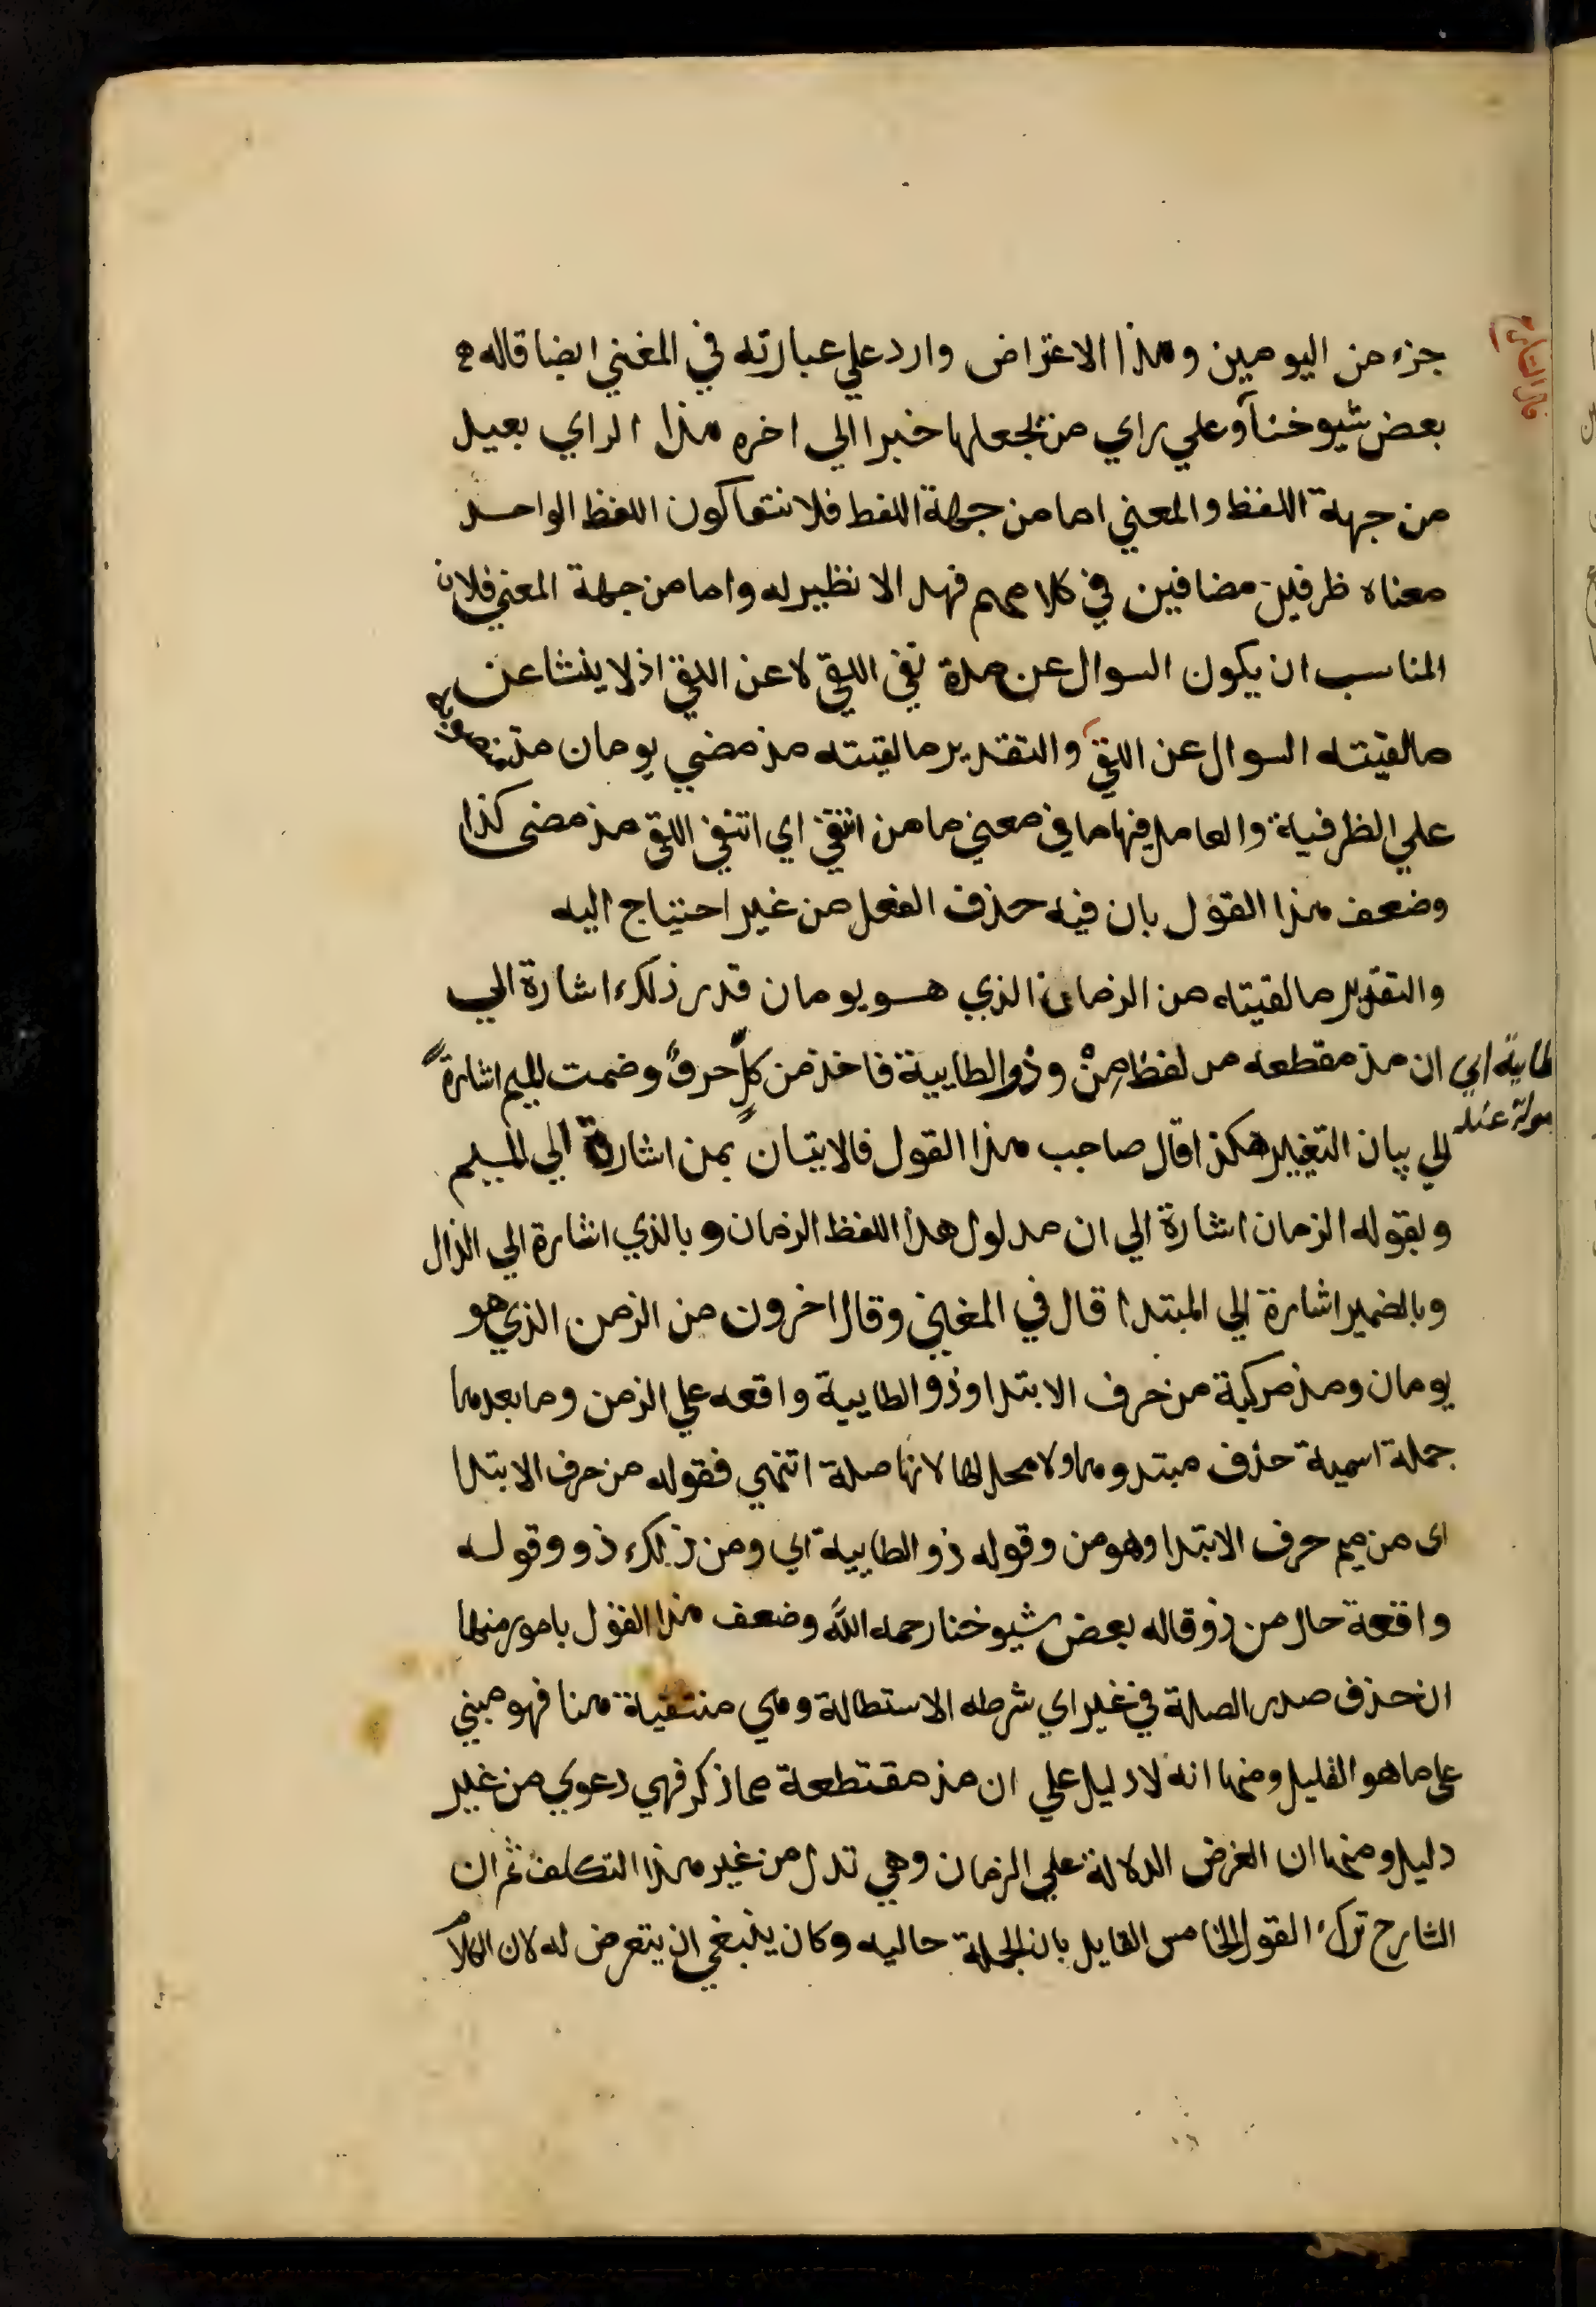 جزء من اليومين وهذا الاعتراض وارد علي عبارته في المغني ايضا قاله
بعض شيوخنا وعلي راي من يجعلها خبرا الي اخره هذا الراي بعيد
من جهة اللفظ والمعني اما من جهة اللفط فلانتفا كون اللفظ الواحد
معناه ظرفين مضافين في كلامهم فهذا لا نظير له واما من جهة المعني فلان
المناسب ان يكون السوال عن مدة نفي اللقي لا عن اللقي اذ لا ينشا عن
ما لقيته السوال عن اللقي والتقدير ما لقيته مذ مضي يومان مذ
علي الظرفية والعامل فيها ما في معني ما من انتفي اي انتفي اللقي مذ مضي كذا
وضعف هذا القول بان فيه حذف الفعل من غير احتياج اليه
والتقدير ما لقيته من الزمان الذي هو يومان قدر ذلك اشارة الي
ان مذ مقطعه من لفظ مِنْ وذُو الطاييية فاخذ من كلٍّ حرفٌ وضمت الميم اشارةً
الي بيان التغيير هكذا قال صاحب هذا القول فالاتيان بمن اشارة الي الميم
وبقوله الزمان اشارة الي ان مدلول هذا اللفظ الزمان وبالذي اشارة الي الذال
وبالضمير اشارة الي المبتدا قال في المغني وقال اخرون من الزمن الذي هو
يومان ومذ مركبة من حرف الابتدا وذو الطايية واقعه علي الزمن وما بعدها
جملة اسمية حذف مبتدوها ولا محل لها لانها صلة انتهي فقوله من حرف الابتدا
اى من ميم حرف الابتدا وهو من وقوله ذو الطايية اي ومن ذلك ذو وقوله
واقعة حال من ذو قاله بعض شيوخنا رحمه الله وضعف هذا القول بامور منها
ان حذف صدر الصلة في غير اي شرطه الاستطالة وهي منتفية هنا فهو مبني
علي ما هو القليل ومنها انه لا دليل علي ان مذ مقتطعة مما ذكر فهي دعوي من غير
دليل ومنها ان الغرض الدلالة علي الزمان وهي تدل من غير هذا التكلف ثم ان
الشارح ترك القول الخامس القايل بان الجملة حاليه وكان ينبغي ان يتعرض له لان الكلام